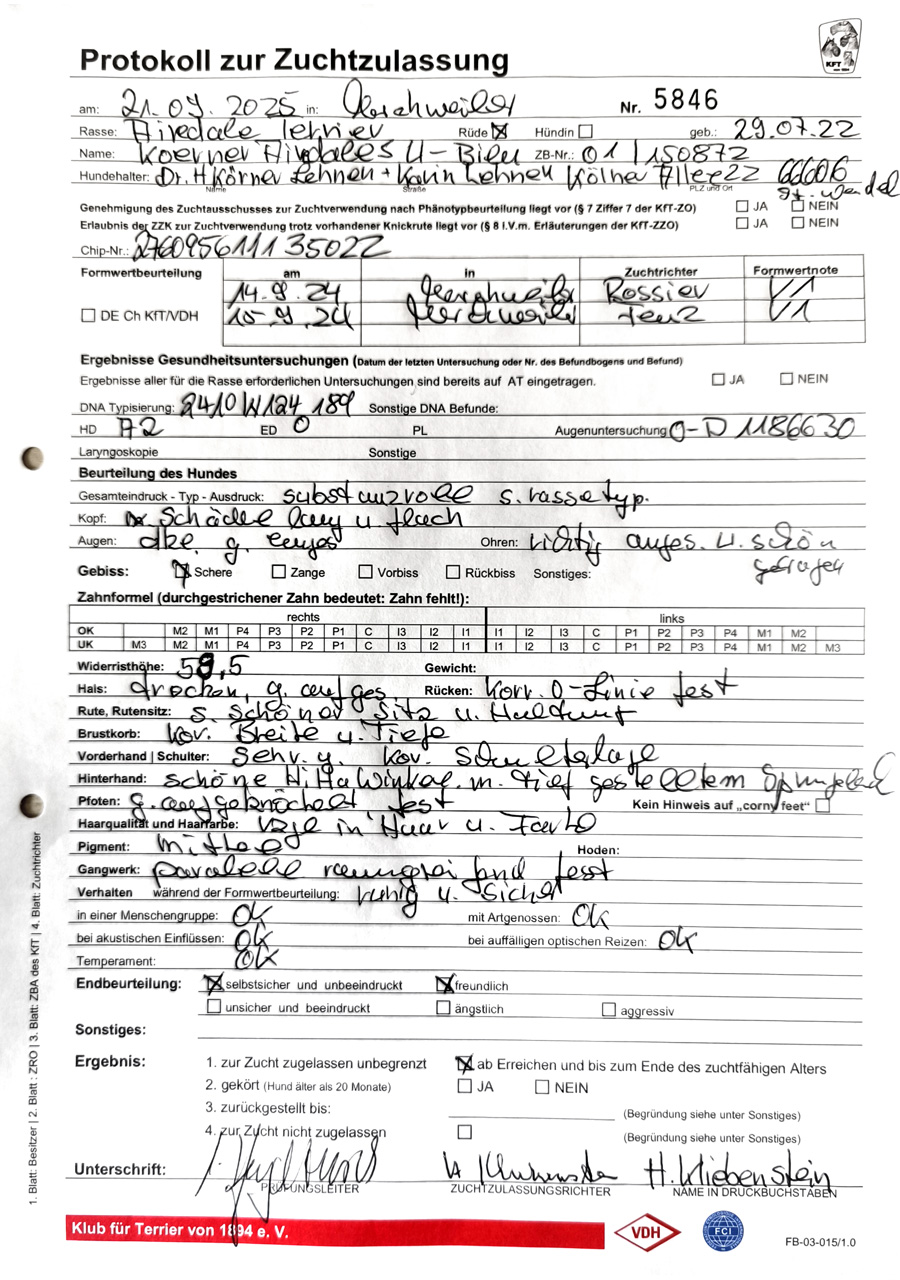 Protokoll zur Zuchtzulassung
KFT
am: 21.09.2025 in: Merchweiler Nr. 5846
Rasse: Airedale Terrier Rüde ☒ Hündin ☐ geb.: 29.07.22
Name: Koerner Airdales U- ZB-Nr.: 01/150872
Hundehalter: Dr. H Körner Lehnen + Karin Lehnen Kölner Allee 22 66606
Name Straße PLZ und Ort St. Wendel
Genehmigung des Zuchtausschusses zur Zuchtverwendung nach Phänotypbeurteilung liegt vor (§ 7 Ziffer 7 der KfT-ZO) ☐ JA ☐ NEIN
Erlaubnis der ZZK zur Zuchtverwendung trotz vorhandener Knickrute liegt vor (§ 8 i.V.m. Erläuterungen der KfT-ZZO) ☐ JA ☐ NEIN
Chip-Nr.: 276095611135022
Formwertbeurteilung am in Zuchtrichter Formwertnote
14.9.24 Merchweiler Rossier V1
☐ DE Ch KfT/VDH 15.9.24 Merchweiler V1
Ergebnisse Gesundheitsuntersuchungen (Datum der letzten Untersuchung oder Nr. des Befundbogens und Befund)
Ergebnisse aller für die Rasse erforderlichen Untersuchungen sind bereits auf AT eingetragen. ☐ JA ☐ NEIN
DNA Typisierung: Sonstige DNA Befunde:
HD A2 ED 0 PL Augenuntersuchung O-D 1186630
Laryngoskopie Sonstige
Beurteilung des Hundes
Gesamteindruck - Typ - Ausdruck: substanzvoll s. rassetyp.
Kopf: Schädel lang u. flach
Augen: dkl. g. Ohren: richtig anges. u. schön
getragen
Gebiss: ☒ Schere ☐ Zange ☐ Vorbiss ☐ Rückbiss Sonstiges:
Zahnformel (durchgestrichener Zahn bedeutet: Zahn fehlt!):
rechts links
OK M2 M1 P4 P3 P2 P1 C I3 I2 I1 I1 I2 I3 C P1 P2 P3 P4 M1 M2
UK M3 M2 M1 P4 P3 P2 P1 C I3 I2 I1 I1 I2 I3 C P1 P2 P3 P4 M1 M2 M3
Widerristhöhe: 59,5 Gewicht:
Hals: trocken, g. aufges Rücken: korr. O-Linie fest
Rute, Rutensitz: s. schöner Sitz u. Haltung
Brustkorb: kor. Breite u. Tiefe
Vorderhand | Schulter: sehr g. kor. Schulterlage
Hinterhand: schöne Hi Ha Winkel. m. tief gestelltem Sprunggelenk
Pfoten: g. aufgeknöchelt fest Kein Hinweis auf „corny feet“ ☐
Haarqualität und Haarfarbe: in Haar u. Farbe
Pigment: mittel Hoden:
Gangwerk: parallel raumgreifend fest
Verhalten während der Formwertbeurteilung: ruhig u. sicher
in einer Menschengruppe: OK mit Artgenossen: OK
bei akustischen Einflüssen: OK bei auffälligen optischen Reizen: OK
Temperament: OK
Endbeurteilung: ☒ selbstsicher und unbeeindruckt ☒ freundlich
☐ unsicher und beeindruckt ☐ ängstlich ☐ aggressiv
Sonstiges:
Ergebnis: 1. zur Zucht zugelassen unbegrenzt ☒ ab Erreichen und bis zum Ende des zuchtfähigen Alters
2. gekört (Hund älter als 20 Monate) ☐ JA ☐ NEIN
3. zurückgestellt bis: (Begründung siehe unter Sonstiges)
4. zur Zucht nicht zugelassen ☐ (Begründung siehe unter Sonstiges)
Unterschrift: H. Kliebenstein
PRÜFUNGSLEITER ZUCHTZULASSUNGSRICHTER NAME IN DRUCKBUCHSTABEN
Klub für Terrier von 1894 e. V. VDH FCI FB-03-015/1.0
1. Blatt: Besitzer | 2. Blatt : ZRO | 3. Blatt: ZBA des KfT | 4. Blatt: Zuchtrichter